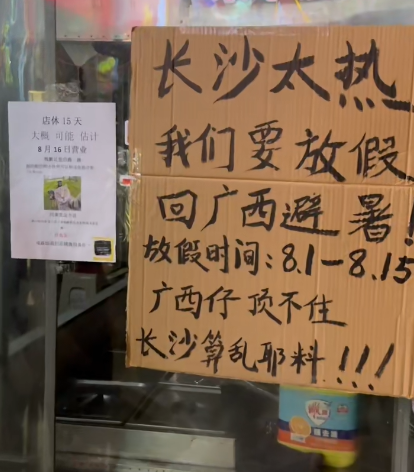 店休 15 天
大概 可能 估计
8 月 16 日营业
长沙太热
我们要放假
回广西避暑!
放假时间:8.1-8.15
广西仔 顶不住
长沙算乱耶料!!!